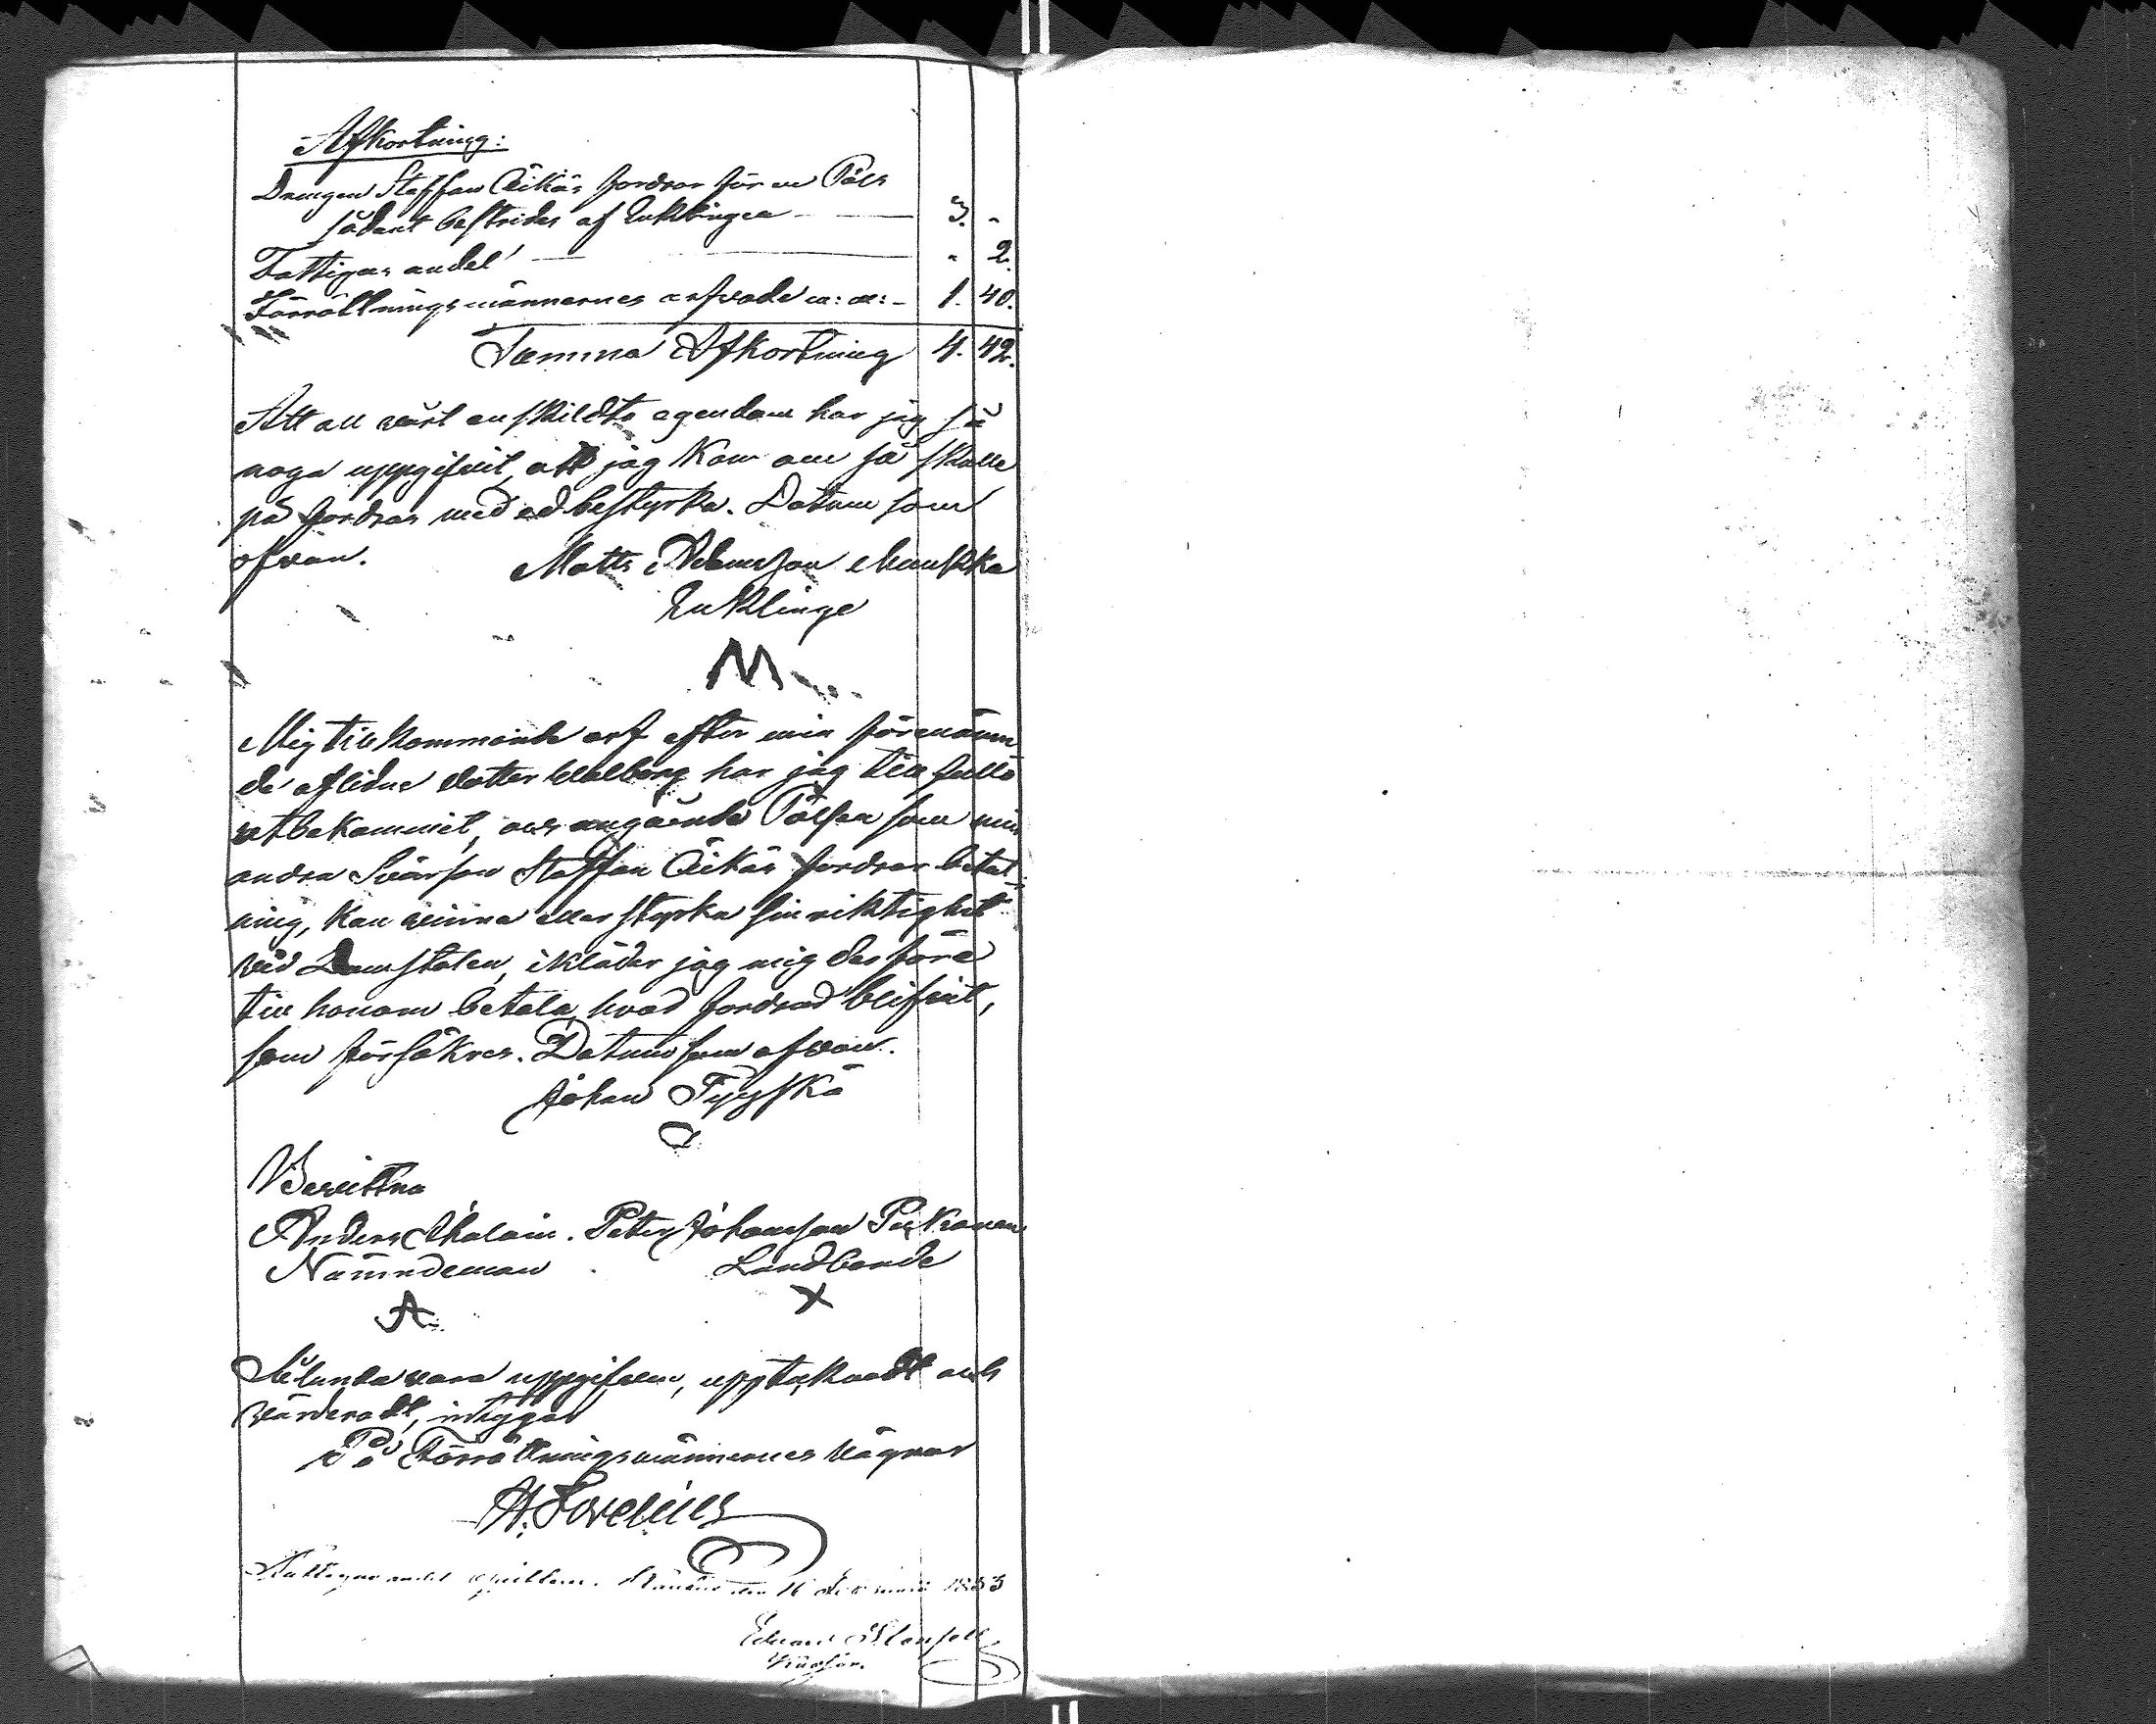 Afkortning:
Drängen Staffan Äikäs fordrar för en Päls
sådant bestrides af Enklingen 3. -
Fattigas andel " 2.
Förrättningsmännernes arfvode m: m: 1. 40.
Summa Afkortning 4. 42.
Att all vårt enskildta egendom har jag så
noga uppgifvit, att jag kan om så skulle
på fordras med ed bestyrka. Datum som
ofvan. Matts Adamsson Munkka
Enklinge
M
Mig tillkommande arf efter min förenämn
de aflidne dotter Walborg har jag till fullo
utbekommit, och angående Pälsen som min
andra Svärson Staffan Äikäs fordrar betal
ning, kan vinna eller styrka sin riktighet
vid Domstolen, ikläder jag mig derföre
till honom betala hvad fordrad blifvit,
som försäkras. Datum som ofvan.
Johan Tyyskä
Bevittna
Anders Ihalain. Petter Johansson Pukanen
Nämndeman Landbonde
A X
Sålunda vara uppgifven, upptecknadt och
värderadt, intygar
På Förrättningsmännernes vägnar
A. Forelius
Fattigas andel qvitteras. den 16 1883
Eduard